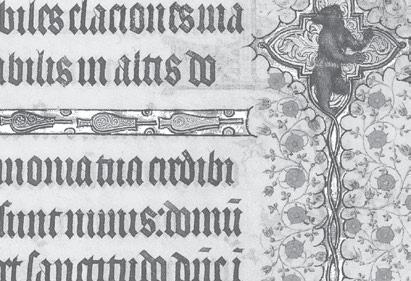 biles elaciones ma
abilis in altis do
monia tua credibi
sunt nimis: domū
et sanctitudo dñe i